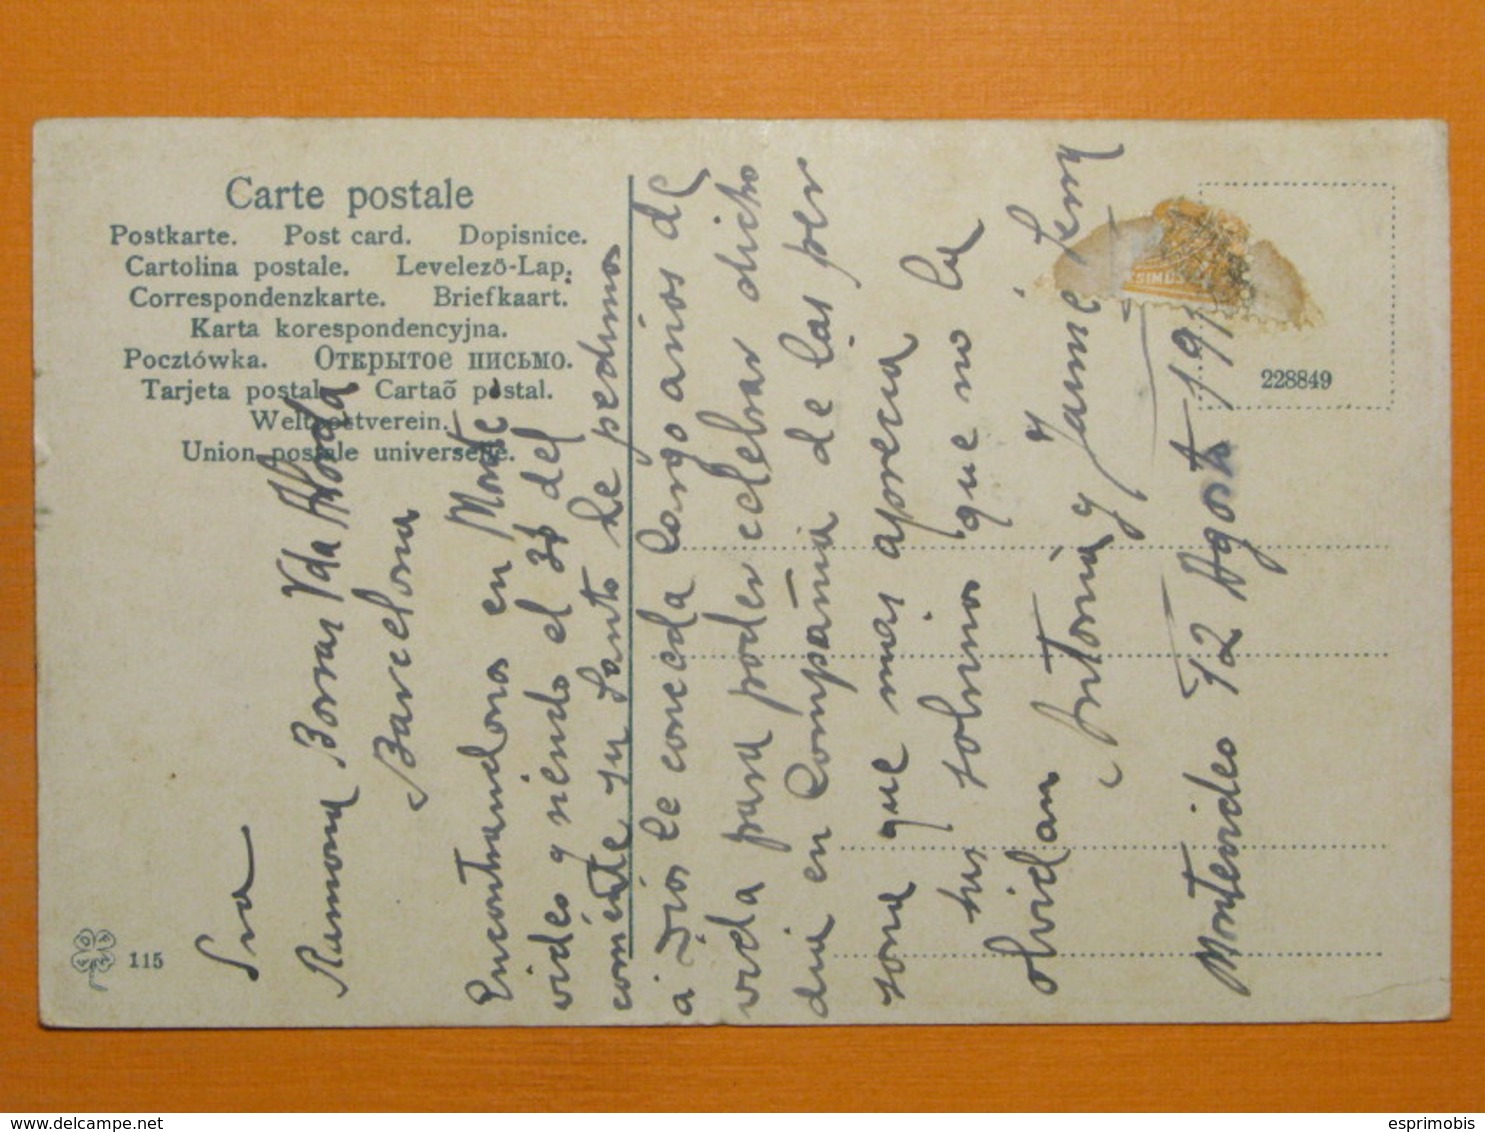 Carte postale
Postkarte. Post card. Dopisnice.
Cartolina postale. Levelező-Lap.
Correspondenzkarte. Briefkaart.
Karta korespondencyjna.
Pocztówka. Открытое письмо.
Tarjeta postal. Cartaõ postal.
Weltpostverein.
Union postale universelle.
115
228849
Sra
Ramona Borras Vda
Barcelona
Encontrandonos en Monte
vidéo y siendo el 31 del
corriente su Santo le pedimos
á Dios le conceda largo años de
vida para poder celebrar dicho
dia en Compañia de las per
sona que mas aprecia
sus sobrinos que no la
olvidan
Antonia y Jaime
Montevideo 12 Agosto 191
esprimobis